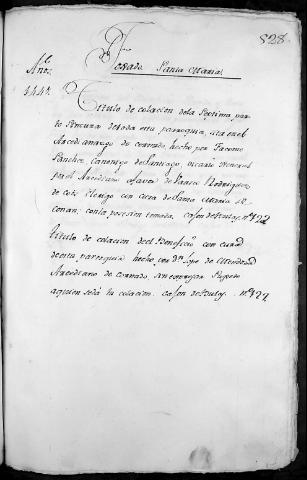 828.
Tosado Santa Maria
Año.
1442.
Titulo de colacion dela Septima par
te Sincura de toda esta parroquia, sita en el
Arcedianazgo de cornado hecho por Facome
Sanchez, Canonigo de Santiago, vicario General
por el Arcediano a favor de Vasco Rodriguez
de Clerigo con cura de Santa Maria de
Conan: con la posesion tomada. Cason de nº 122
Titulo de colacion del Beneficio con cura
de esta parroquia hecho por Dn. Lope de Mendoza
Arcediano de Cornado, sin expresar Sugeto
a quien se dá la colacion. Cason de nº 122